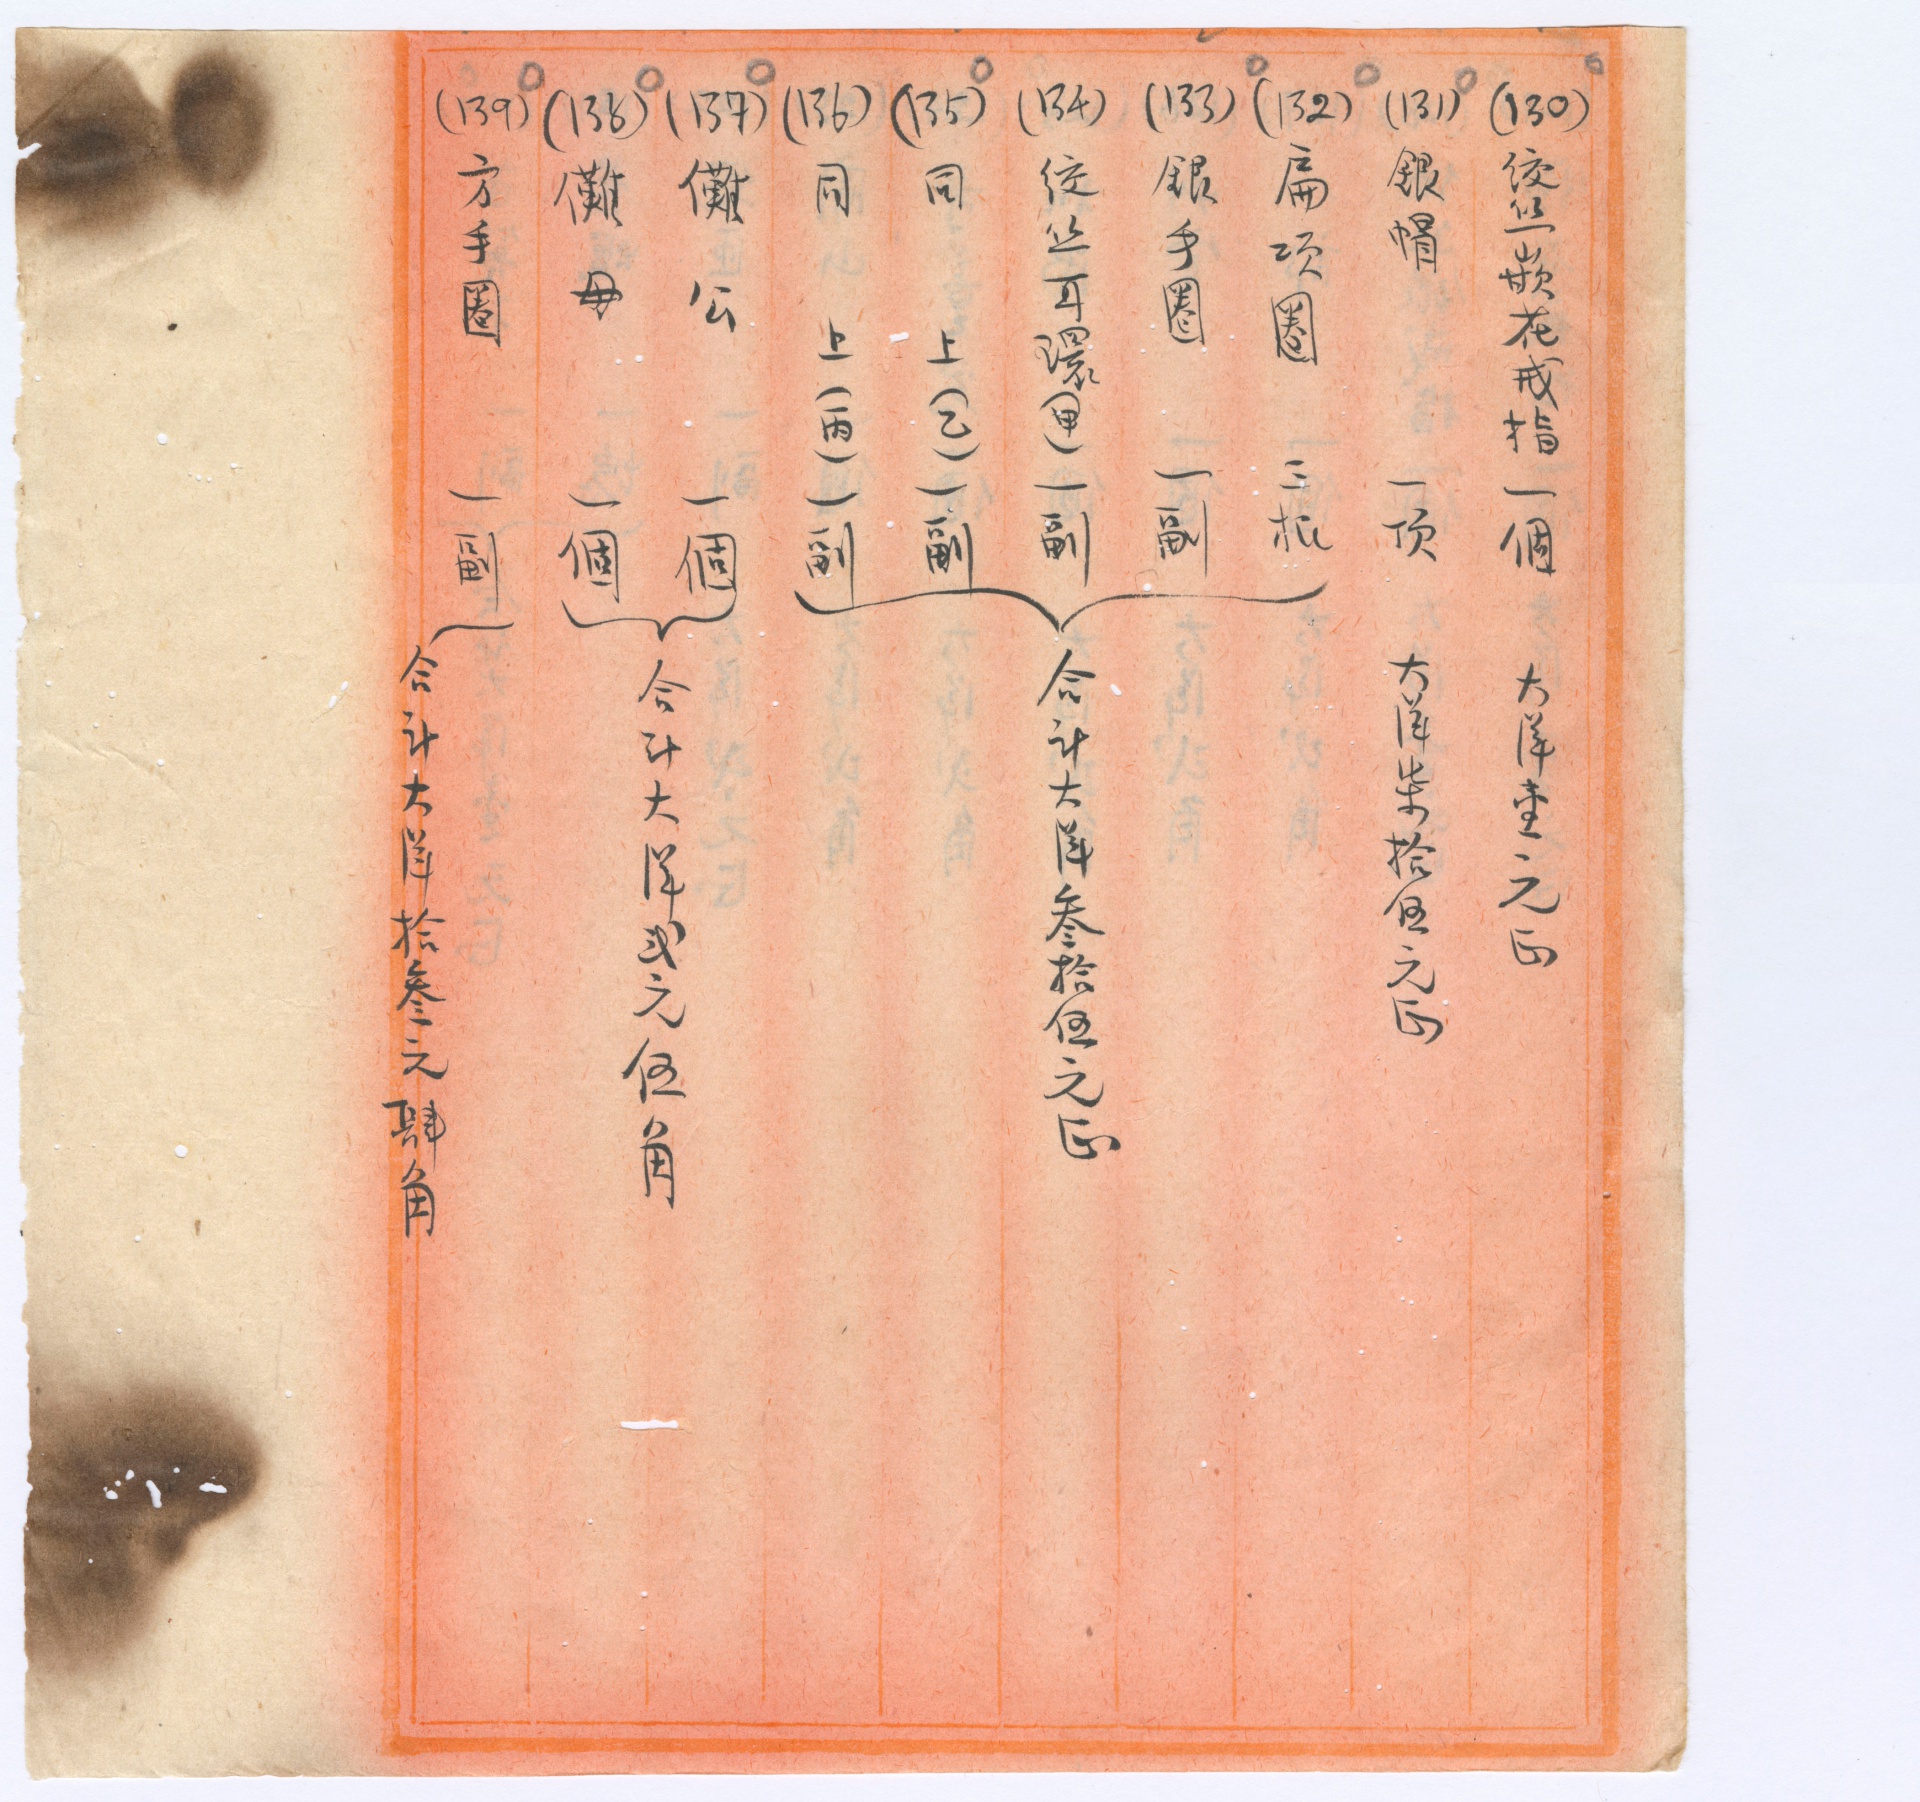 (130) 絞丝嵌花戒指 一個 大洋壹元正
(131) 銀帽 一顶 大洋柒拾伍元正
(132) 扁项圈 三根
(133) 銀手圈 一副
(134) 絞丝耳環(甲) 一副
(135) 同上(乙) 一副
(136) 同上(丙) 一副
合计大洋叁拾伍元正
(137) 儺公 一個
(138) 儺母 一個
合计大洋弍元伍角
(139) 方手圈 一副
合计大洋拾叁元肆角